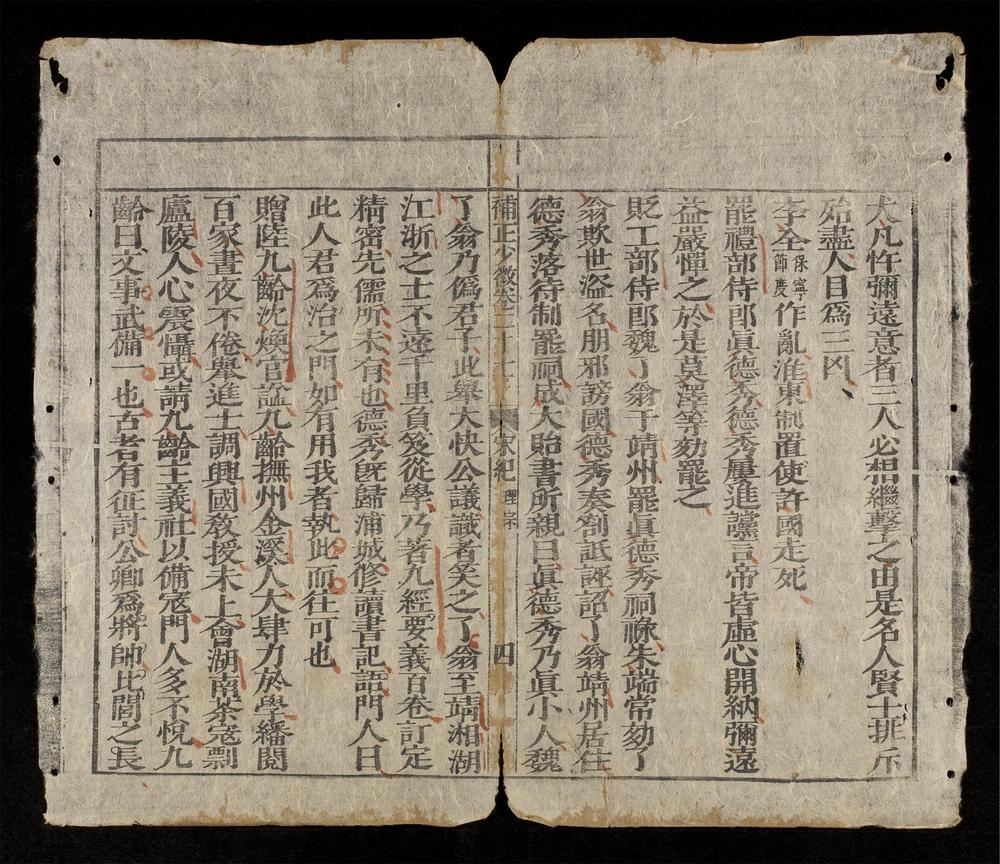 大凡忤彌遠意者三人必相繼擊之由是名人賢士排斥
殆盡人目爲三凶、
李全保寧節慶作亂淮東制置使許國走死
罷禮部侍郎眞德秀德秀屢進讜言帝皆虛心開納彌遠
益嚴憚之於是莫澤等劾罷之
貶工部侍郎魏了翁于靖州罷眞德秀祠祿朱端常劾了
翁欺世盜名朋邪謗國德秀奏劄詆誣詔了翁靖州居住
德秀落待制罷祠成大貽書所親曰眞德秀乃眞小人魏
補正少微卷二十七 宋紀 理宗 四
了翁乃僞君子此舉大快公議識者笑之了翁至靖湘湖
江浙之士不遠千里負笈從學乃著九經要義百卷訂定
精密先儒所未有也德秀旣歸浦城修讀書記語門人曰
此人君爲治之門如有用我者執此而往可也
贈陸九齡沈煥官諡九齡撫州金溪人大肆力於學繙閱
百家晝夜不倦舉進士調興國敎授未上會湖南茶寇剽
廬陵人心震懾或請九齡主義社以備寇門人多不悅九
齡曰文事武備一也古者有征討公卿爲將帥比閭之長